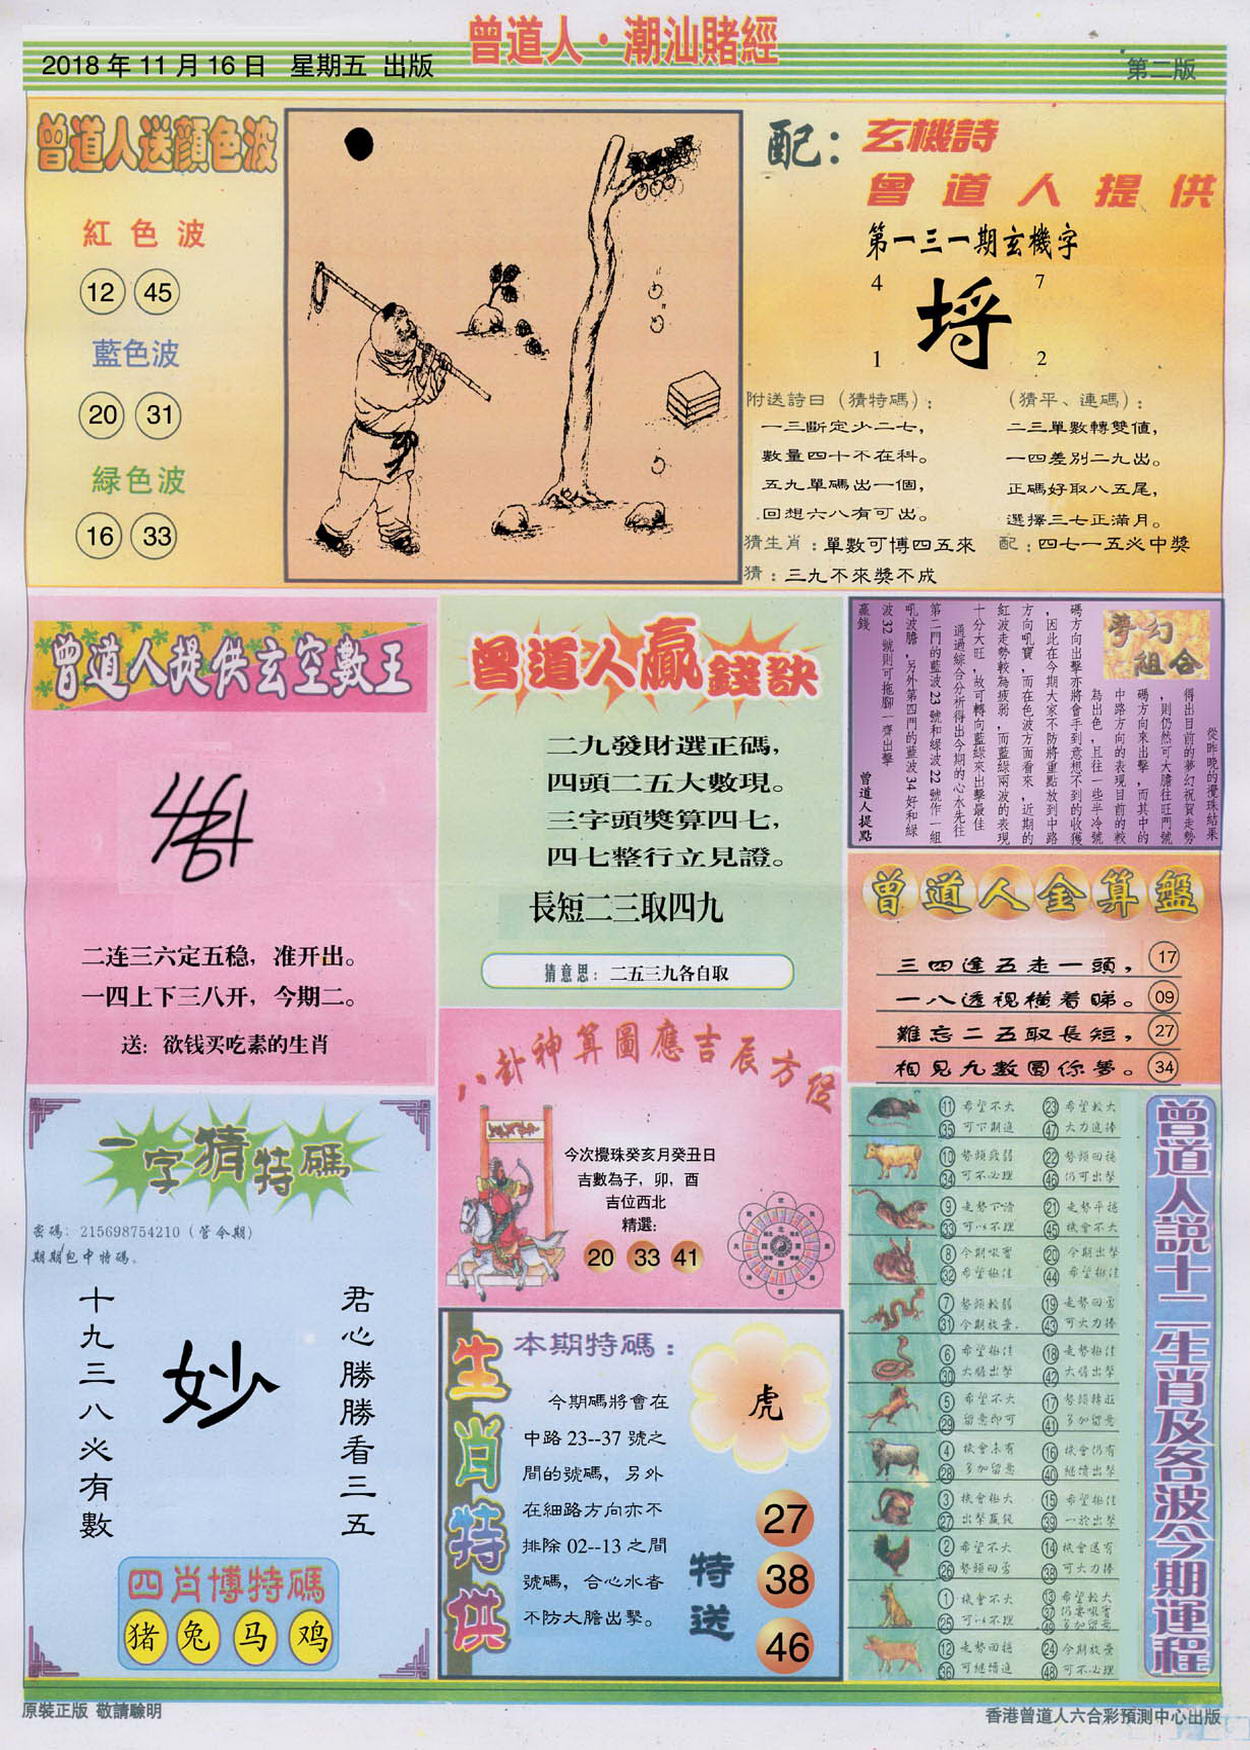 曾道人·潮汕賭經
2018年11月16日 星期五 出版
第二版
曾道人送顏色波
紅色波
12 45
藍色波
20 31
緑色波
16 33
配：玄機詩
曾道人提供
第一三一期玄機字
4 7
埓
1 2
附送詩曰（猜特碼）：
一三斷定少二七，
數量四十不在科。
五九單碼出一個，
回想六八有可出。
（猜平、連碼）：
二三單數轉雙值，
一四差別二九出。
正碼好取八五尾，
選擇三七正滿月。
猜生肖：單數可博四五來 配：四七一五必中獎
猜：三九不來獎不成
曾道人提供玄空數王
二连三六定五稳，准开出。
一四上下三八开，今期二。
送：欲钱买吃素的生肖
曾道人贏錢訣
二九發財選正碼，
四頭二五大數現。
三字頭獎算四七，
四七整行立見證。
長短二三取四九
猜意思：二五三九各自取
夢幻
組合
從昨晚的攪珠結果
得出目前的夢幻祝賀走勢
，則仍然可大膽往旺門號
碼方向來出擊，而其中的
中路方向的表現目前的較
為出色，且往一些半冷號
碼方向出擊亦將會手到意想不到的收獲
，因此在今期大家不防將重點放到中路
方向吼寶，而在色波方面看來，近期的
紅波走勢較為疲弱，而藍綠兩波的表現
十分大旺，故可轉向藍綠來出擊最佳
通過綜合分析得出今期的心水先往
第二門的藍波23號和绿波22號作一組
吼波膽，另外第四門的藍波34好和綠
波32號則可拖腳一齊出擊
贏錢 曾道人提點
曾道人金算盤
三四逢五走一頭， 17
一八透視橫着睇。 09
難忘二五取長短， 27
相見九數圓你夢。 34
一字猜特碼
密碼：215698754210（管令期）
期期包中特碼。
君心勝勝看三五
妙
十九三八必有數
四肖博特碼
猪 兔 马 鸡
八卦神算圖應吉辰方位
今次攪珠癸亥月癸丑日
吉數為子，卯，酉
吉位西北
精選：
20 33 41
生肖特供
本期特碼：
今期碼將會在
中路23--37號之
間的號碼，另外
在細路方向亦不
排除02--13之間
號碼，合心水者
不防大膽出擊。
虎
特送
27
38
46
曾道人説十二生肖及各波今期運程
11 希望不大 23 希望較大
35 可下期追 47 大力追捧
10 勢頭疲弱 22 勢頭回穩
34 可不必理 46 仍可出擊
9 走勢下滑 21 走勢平穩
33 可以不理 45 機會不大
8 今期吼實 20 今期出擊
32 希望極佳 44 希望極佳
7 勢頭較弱 19 走勢回勇
31 今期放棄. 43 可大力捧
6 希望極佳 18 走勢極佳
30 大膽出擊 42 大膽出擊
5 希望不大 17 勢頭轉旺
29 留意即可 41 多加留意
4 機會未有 16 機會仍有
28 多加留意 40 繼續出擊
3 機會極大 15 希望極佳
27 出擊贏錢 39 一於出擊
2 希望不大 14 機會還有
26 勢頭回勇 38 可大力捧
1 機會不大 13 希望較大
25 可以不理 37 仍要吼實
49 多加留意
12 走勢回穩 24 今期放棄
36 可繼續追 48 可不必理
原裝正版 敬請驗明
香港曾道人六合彩預測中心出版